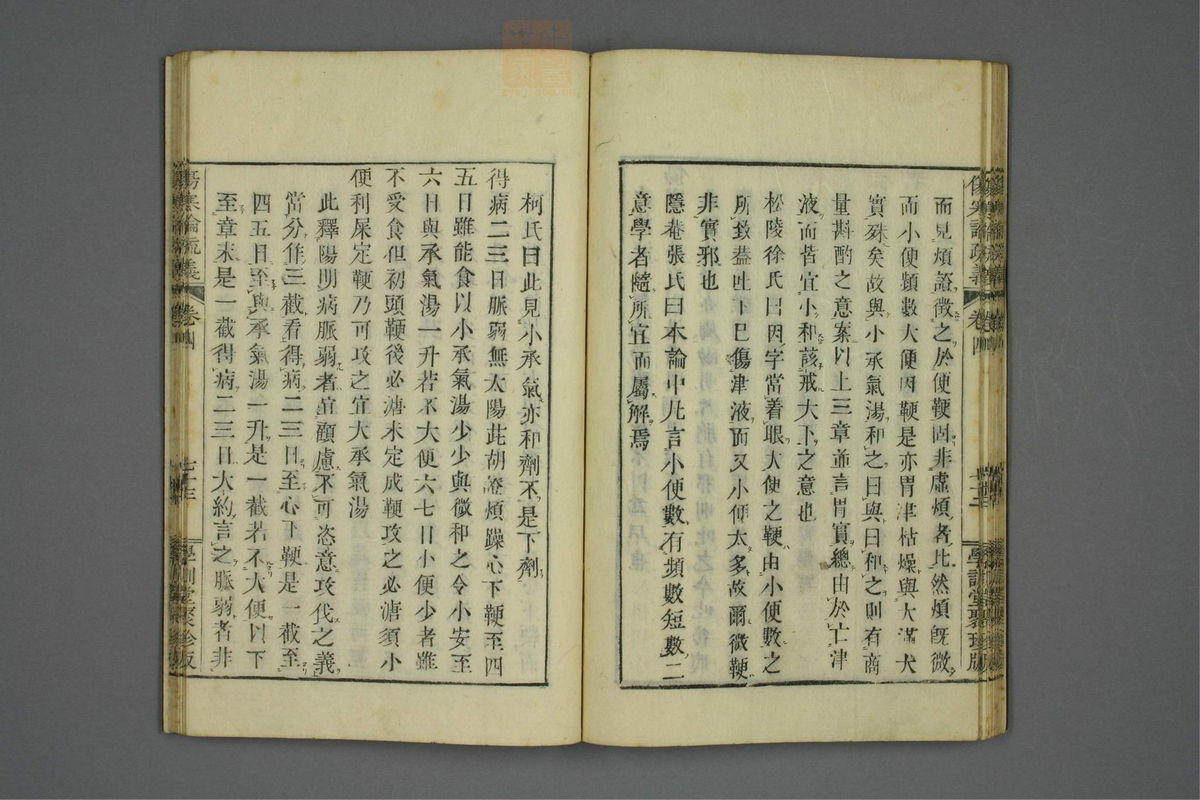 而見煩證徵之於便鞕固非虛煩者比然煩旣微
而小便頻數大便因鞕是亦胃津枯燥與大滿大
實殊矣故與小承氣湯和之曰與曰和之則有商
量斟酌之意案以上三章並言胃實總由於亡津
液而皆宜小和該戒大下之意也
松陵徐氏曰因字當着眼大便之鞕由小便數之
所致蓋吐下巳傷津液而又小便太多故爾微鞕
非實邪也
隱菴張氏曰本論中凡言小便數有頻數短數二
意學者隨所宜而屬解焉
傷寒論疏義
卷四
七十二
學訓堂聚珍版
柯氏曰此見小承氣亦和劑不是下劑
得病二三日脈弱無太陽茈胡證煩躁心下鞕至四
五日雖能食以小承氣湯少少與微和之令小安至
六日與承氣湯一升若不大便六七日小便少者雖
不受食但初頭鞕後必溏未定成鞕攻之必溏須小
便利屎定鞕乃可攻之宜大承氣湯
此釋陽明病脈弱者宜顧慮不可恣意攻伐之義
當分作三截看得病二三日至心下鞕是一截至
四五日至與承氣湯一升是一截若不大便以下
至章末是一截得病二三日大約言之脈弱者非
傷寒論疏義
卷四
七十三
學訓堂聚珍版